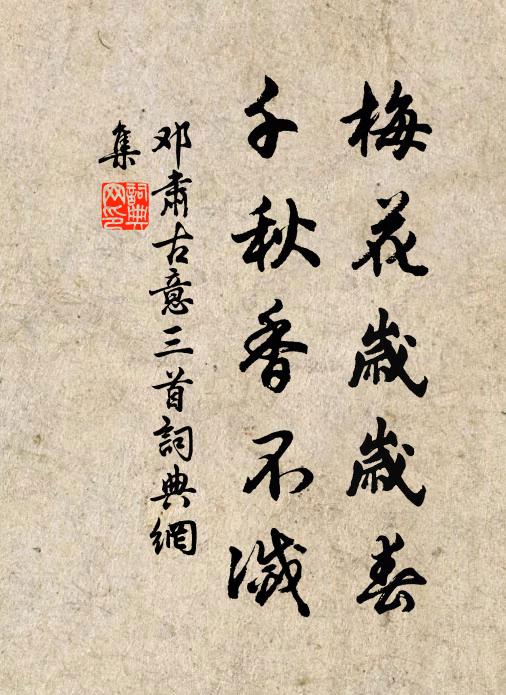 梅花歲歲春
千秋香不滅
邓肅古意三首詞典網
集
詞典網印